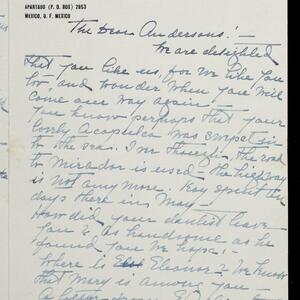 APARTADO (P. O. BOX) 2853
MEXICO, D. F. MEXICO
The Dear Andersons! —
We are delighted
that you like us, for we like you
too and wonder when you will
come our way again —
You know perhaps that your
lovely Acapulca was swept in
to the sea. I'm though. the road
to Mirador is used – the highway
is not any more. Kay spent ten
days there in May —
How did your dentist leave
you? as handsome as he
found you we hope. –
Where is Eleanor – We know
that Mary is among you –